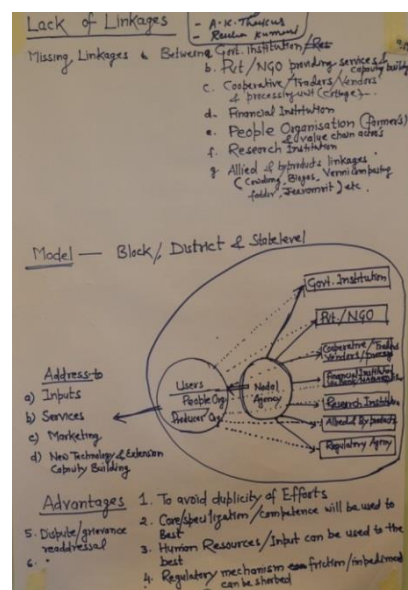 Lack of Linkages
- A.K. Thakur
- Kumar
Missing Linkages & Between
a. Govt. Institution/Res
b. Pvt/NGO providing services & capacity building
c. Cooperative/Traders/Vendors
& processing unit (cottage)
d. Financial Institution
e. People Organisation (farmer's)
& value chain actors
f. Research Institution
g. Allied & byproducts linkages
(Cowdung, Biogas, Vermicomposting
fodder, Jeevamrit) etc.
Model — Block/District & State level
Govt. Institution
Pvt./NGO
Cooperative/Traders
Vendors/
Financial Institution
Research Institution
Allied & by products
Regulatory Agency
Users
People Org
Producer Org
Nodal
Agency
Address to
a) Inputs
b) Services
c) Marketing
d) New Technology & Extension
Capacity Building
Advantages
1. To avoid duplicity of Efforts
2. Core/specilization/competence will be used to
Best
3. Human Resources/Input can be used to the
best
4. Regulatory mechanism friction/impediment
can be
5. Dispute/grievance
readdressal
6.